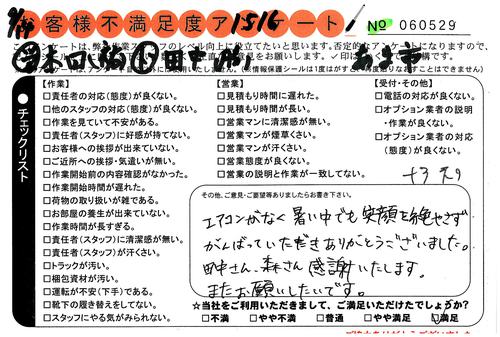 お客様不満足度アンケート
1516
№ 060529
【作業】
□責任者の対応(態度)が良くない。
□他のスタッフの対応(態度)が良くない。
□作業を見ていて不安がある。
□責任者(スタッフ)に好感が持てない。
□お客様への挨拶が出来ていない。
□ご近所への挨拶・気遣いが無い。
□作業開始前の内容確認がなかった。
□作業開始時間が遅れた。
□荷物の取り扱いが雑である。
□お部屋の養生が出来ていない。
□作業時間が長すぎる。
□責任者(スタッフ)に清潔感が無い。
□責任者(スタッフ)が汗くさい。
□トラックが汚い。
□梱包資材が汚い。
□運転が不安(下手)である。
□靴下の履き替えをしてない。
□スタッフにやる気がみられない。
【営業】
□見積もり時間に遅れた。
□見積もり時間が長い。
□営業マンに清潔感が無い。
□営業マンが煙草くさい。
□営業マンが汗くさい。
□営業態度が良くない。
□営業の説明と作業が一致してない。
【受付・その他】
□電話の対応が良くない。
□オプション業者の説明
・作業が良くない。
□オプション業者の対応
(態度)が良くない。
チェックリスト
その他、ご意見・ご要望等ありましたらお書き下さい。
エアコンがなく暑い中でも笑顔を絶やさず
がんばっていただきありがとうございました。
田中さん、森さん感謝いたします。
またお願いしたいです。
☆当社をご利用いただきまして、ご満足いただけたでしょうか?
□不満 □やや不満 □普通 □やや満足 □満足